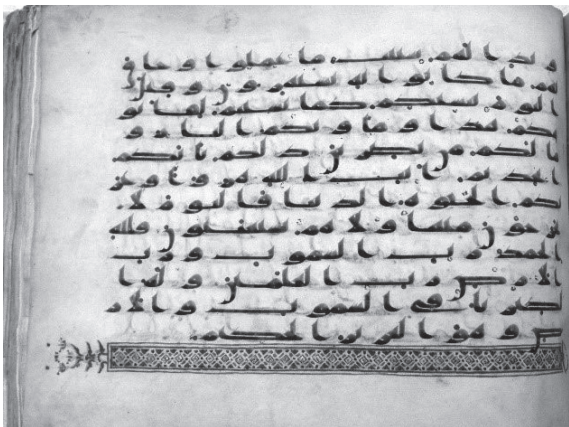 و بدا لهم سيات ما عملوا و حاق
بهم ما كانوا به يستهزون و قيل
اليوم ننسيكم كما نسيتم لقا يو
مكم هذا و ماويكم النار و
ما لكم من نصرين ذلكم بانكم
اتخذتم ايت الله هزوا و غر
تكم الحيوة الدنيا فاليوم لا
يخرجون منها ولا هم يستعتبون فلله
الحمد رب السموت و رب
الارض رب العلمين و له ا
لكبريا في السموت و الار
ض و هو العزيز الحكيم